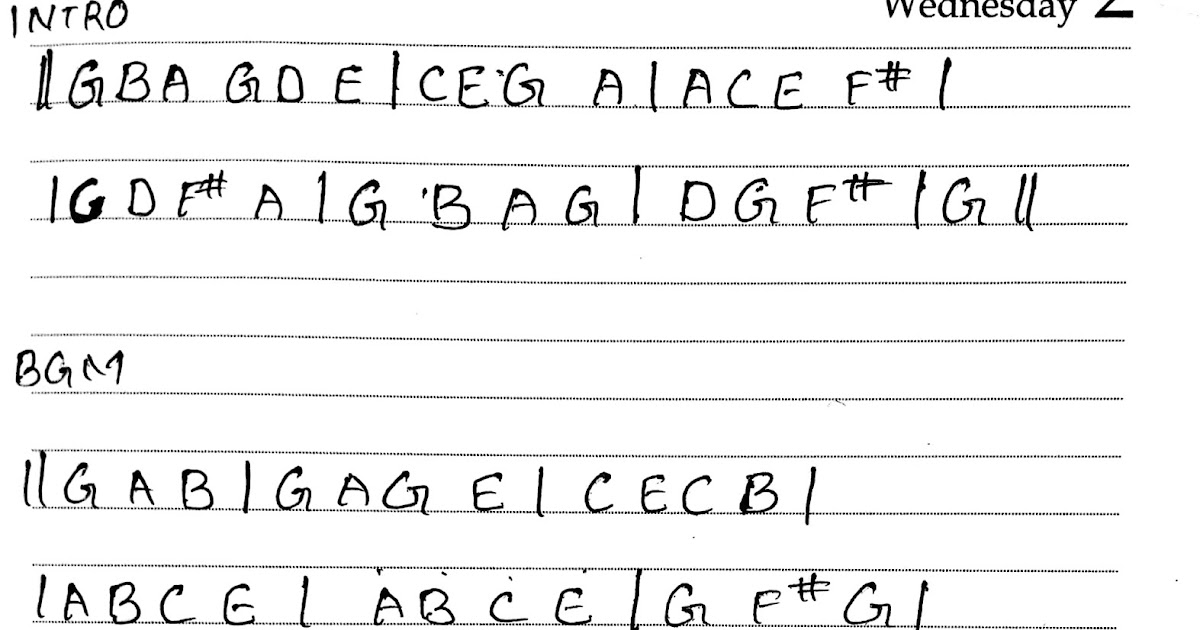 Wednesday 2
INTRO
||GBA GD E | CEG A | ACE F# |
|G D F# A | G B A G | D G F# | G ||
BGM
||G A B | G A G E | C E C B |
|A B C E | A B C E | G F# G |